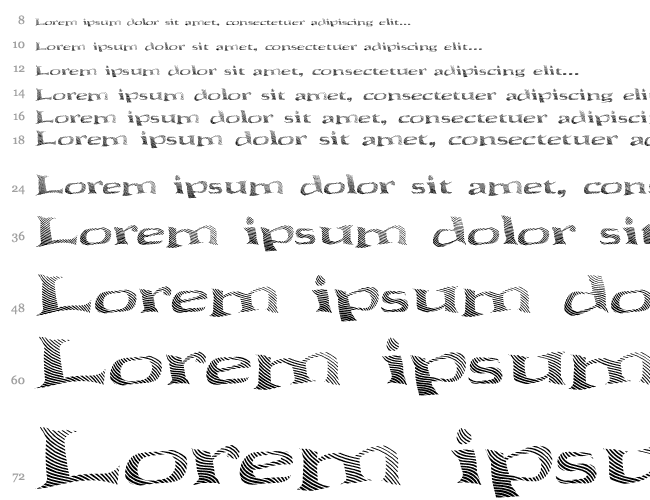 8 Lorem ipsum dolor sit amet, consectetuer adipiscing elit...
10 Lorem ipsum dolor sit amet, consectetuer adipiscing elit...
12 Lorem ipsum dolor sit amet, consectetuer adipiscing elit...
14 Lorem ipsum dolor sit amet, consectetuer adipiscing eli
16 Lorem ipsum dolor sit amet, consectetuer adipisci
18 Lorem ipsum dolor sit amet, consectetuer ad
24 Lorem ipsum dolor sit amet, cons
36 Lorem ipsum dolor sit
48 Lorem ipsum do
60 Lorem ipsum
72 Lorem ipsu